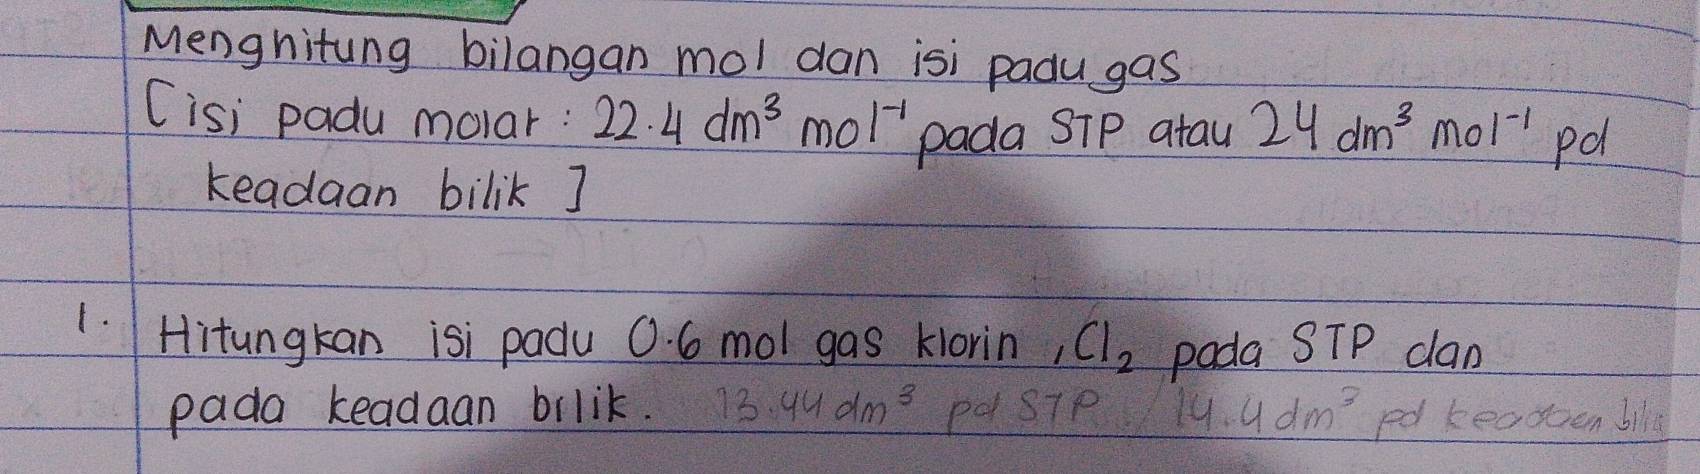 Menghitung bilangan mol dan isi padu gas
[isi padu molar : 22.4 dm³ mol⁻¹ pada STP atau 24 dm³ mol⁻¹ pd
keadaan bilik ]
1. Hitungkan isi padu 0.6 mol gas klorin, Cl₂ pada STP dan
pada keadaan bilik. 13.44 dm³ pd STP / 14.4 dm³ pd keadaan bilik